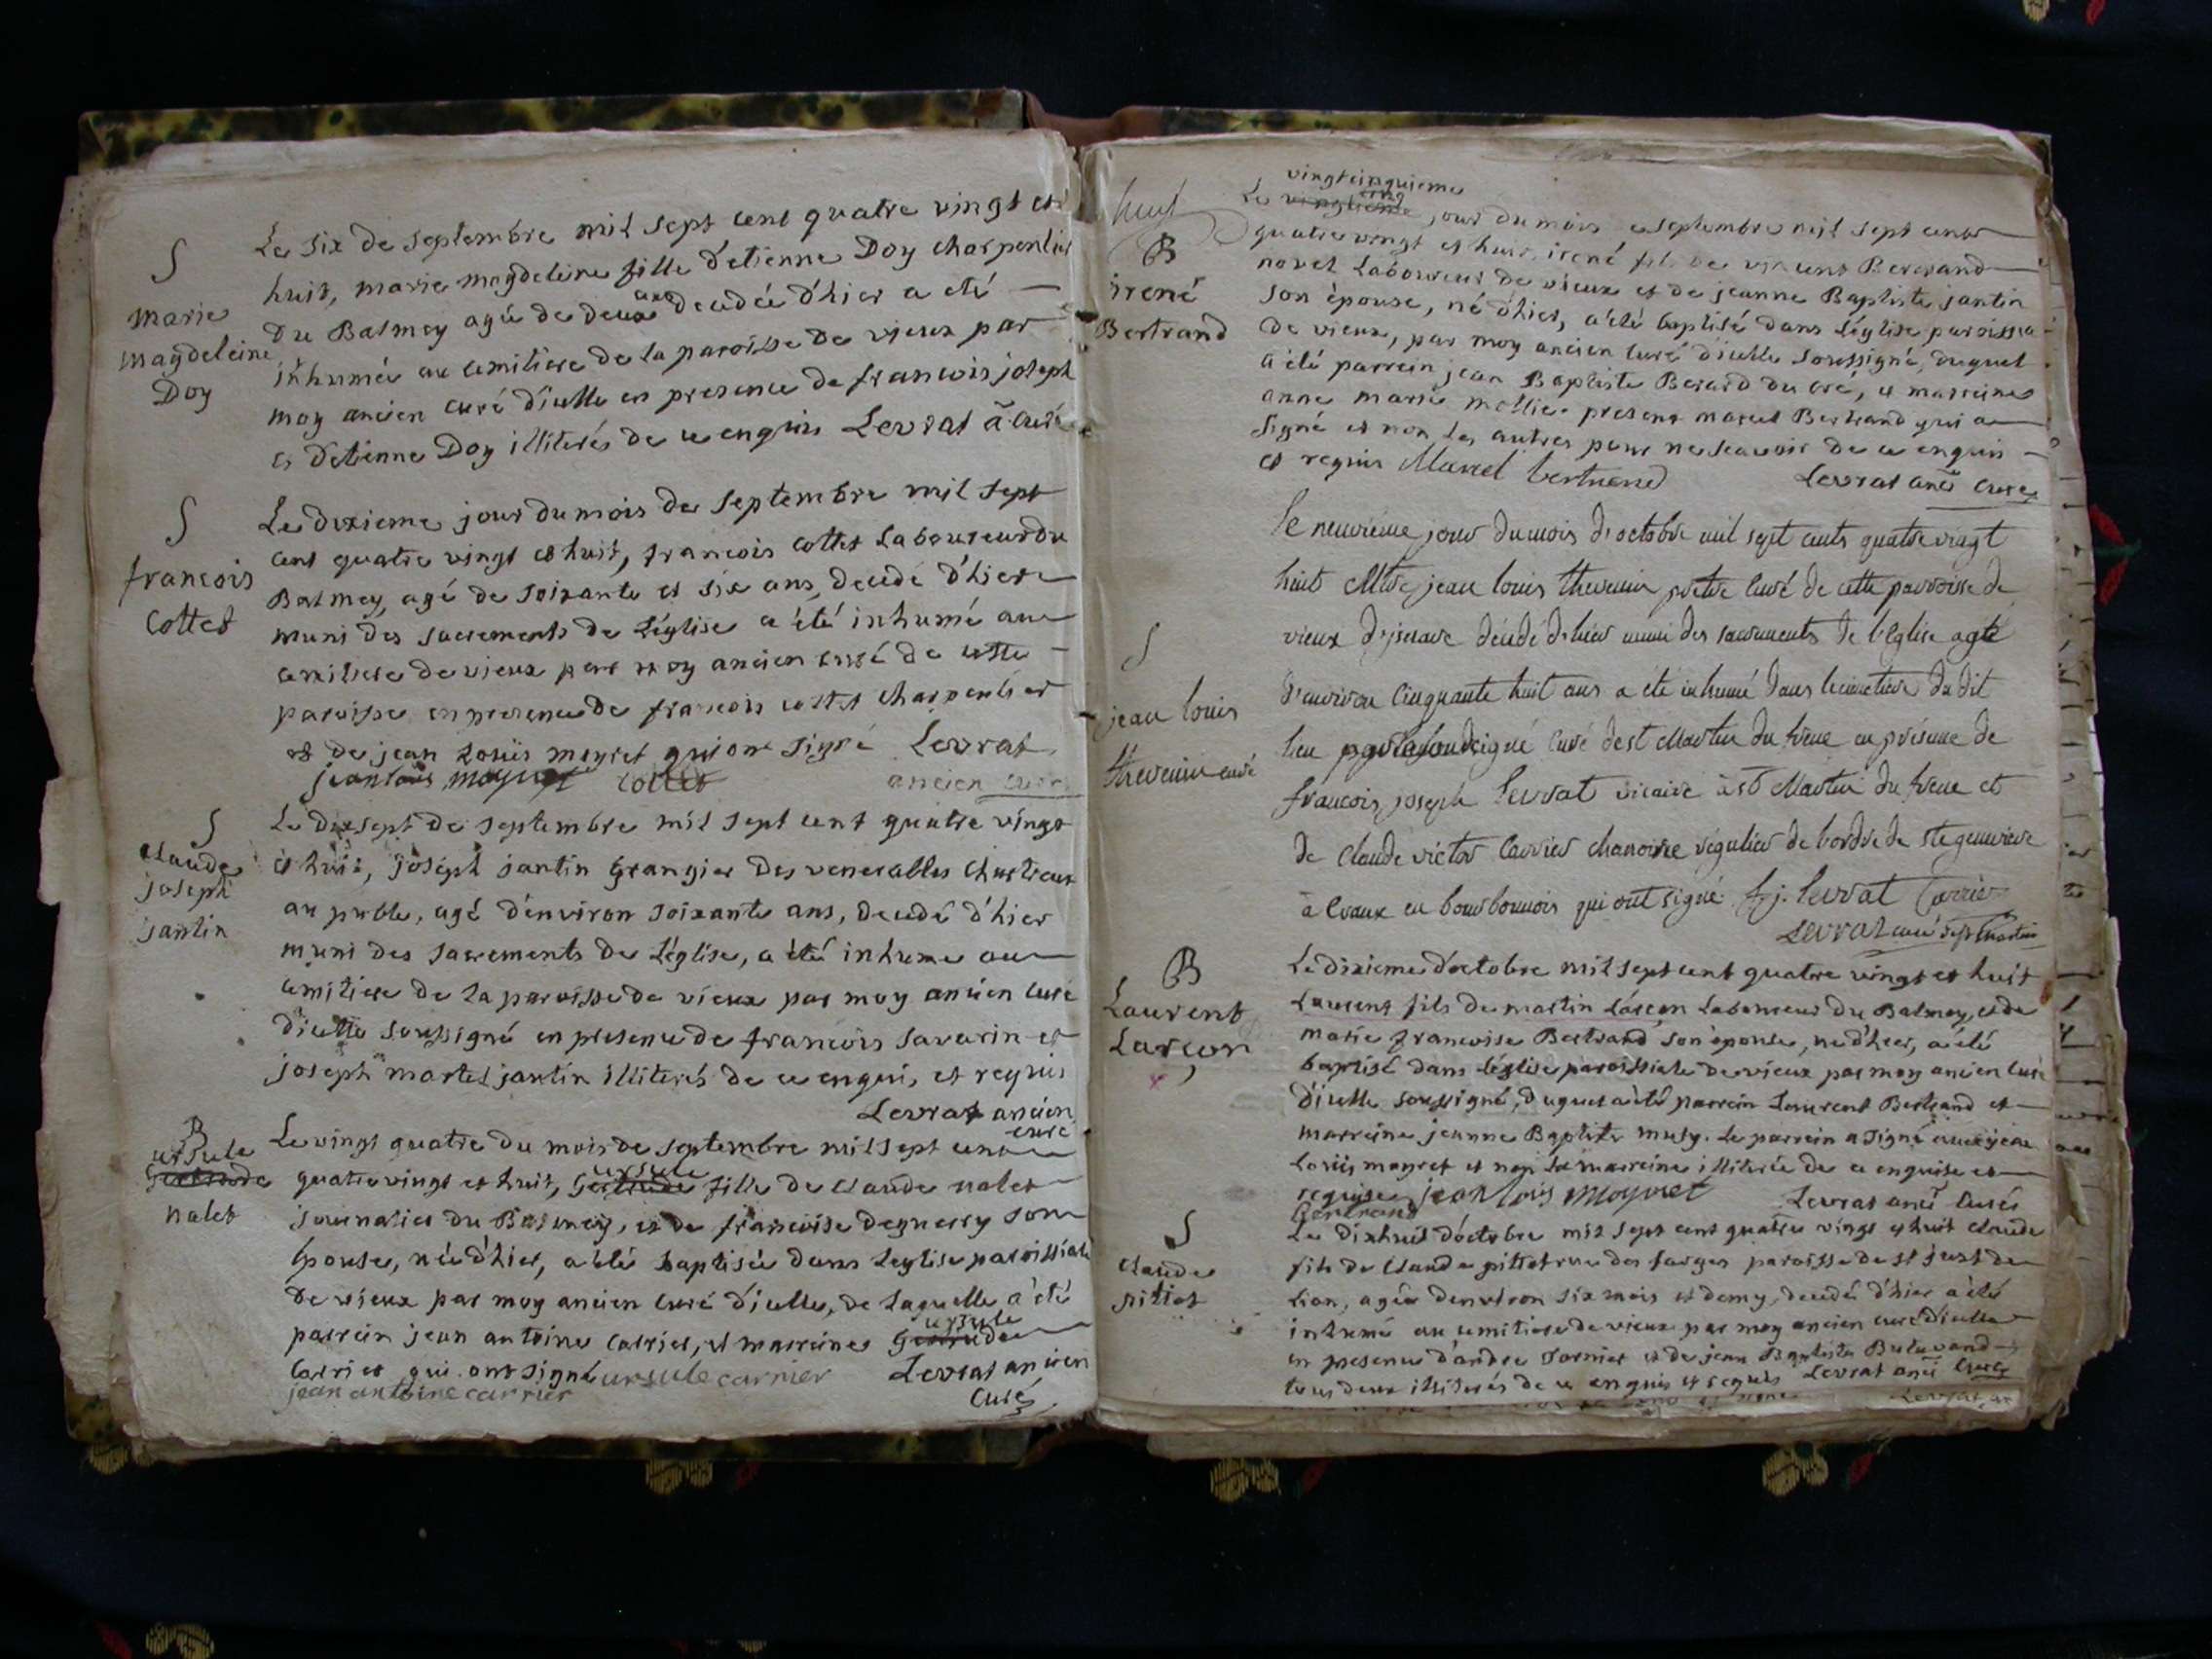 S
marie
magdeleine
Doy
Le six de septembre mil sept cent quatre vingt et
huit, marie magdeleine fille d'etienne Doy charpentier
du Balmey agée de deux ans decedée d'hier a eté
inhumée au cemitiere de la paroisse de vieux par
moy ancien curé d'icelle en presence de francois joseph
et d'etienne Doy illiterés de ce enquis Levrat a. curé
S
francois
Cottet
Le dixieme jour du mois de septembre mil sept
cent quatre vingt et huit, francois cottet Laboureur du
Balmey, agé de soixante et six ans, decedé d'hier
muni des sacrements de L'église a été inhumé au
cemitiere de vieux par moy ancien curé de cette
paroisse en presence de francois cottet charpentier
et de jean Louis meyret qui ont signé Levrat
jean louis meyret cottet ancien curé
S
Claude
joseph
jantin
Le dixsept de septembre mil sept cent quatre vingt
et huit, joseph jantin Grangier des venerables Chartreux
au puble, agé d'environ soixante ans, decedé d'hier
muni des sacrements de L'église, a été inhumé au
cemitiere de la paroisse de vieux par moy ancien curé
d'icelle soussigné en presence de francois savarin et
joseph martel jantin illiterés de ce enquis, et requis
Levrat ancien
curé
B
ursule
Gertrude
nalet
Le vingt quatre du mois de septembre mil sept cent
quatre vingt et huit, Gertrude ursule fille de claude nalet
journalier du Balmey, et de francoise deguerry son
Epouse, née d'hier, a été baptisée dans Leglise paroissiale
de vieux par moy ancien curé d'icelle, de Laquelle a été
parrein jean antoine carrier, et marreine Gertrude ursule
Carrier qui ont signé ursule carrier Levrat ancien
jean antoine carrier Curé
huit
B
irené
Bertrand
vingtcinquieme
Le vingtieme cinq jour du mois septembre mil sept cent
quatre vingt et huit, irené fils de vincent Bertrand
novel Laboureur de vieux et de jeanne Baptiste jantin
son épouse, né d'hier, a été baptisé dans L'église paroissia
de vieux, par moy ancien curé d'icelle soussigné, duquel
a été parrein jean Baptiste Berard du cré, et marreine
anne marie mollie presens marcel Bertrand qui a
signé et non les autres pour ne sçavoir de ce enquis
et requis Marcel bertrand Levrat anc curé
S
jean louis
thevenin curé
le neuvieme jour du mois d'octobre mil sept cents quatre vingt
huit Mtre jean louis thevenin prêtre curé de cette parroisse de
vieux d'iserave décédé d'hier muni des sacrements de l'Eglise agé
d'environ cinquante huit ans a été inhumé dans le cimetiere du dit
lieu par le soussigné curé de st Martin du frene en présence de
francois joseph levrat vicaire à st Martin du frene et
de claude victor Carrier chanoine régulier de l'ordre de ste genevieve
à Evaux en bourbonnois qui ont signé f. j. levrat Carrier
Levrat curé de st Martin
B
Laurent
Larçon
Le dixieme d'octobre mil sept cent quatre vingt et huit
Laurent fils de martin Larçon Laboureur du Balmey, et de
marie francoise Bertrand son épouse, né d'hier, a été
baptisé dans L'église paroissiale de vieux par moy ancien curé
d'icelle soussigné, duquel a été parrein Laurent Bertrand et
marreine jeanne Baptiste musy. Le parrein a signé avec jean
Louis mayret et non La marreine illiterée de ce enquise et
requise jean louis mayret Levrat anc curé
Bertrand
S
Claude
pittet
Le dixhuit d'octobre mil sept cent quatre vingt et huit claude
fils de claude pittet rue des farges paroisse de st just de
Lion, agée d'environ six mois et demy, decedé d'hier a été
inhumé au cemitiere de vieux par moy ancien curé d'icelle
en presence d'andre et de jean Baptiste
tous deux illiterés de ce enquis et requis Levrat anc curé